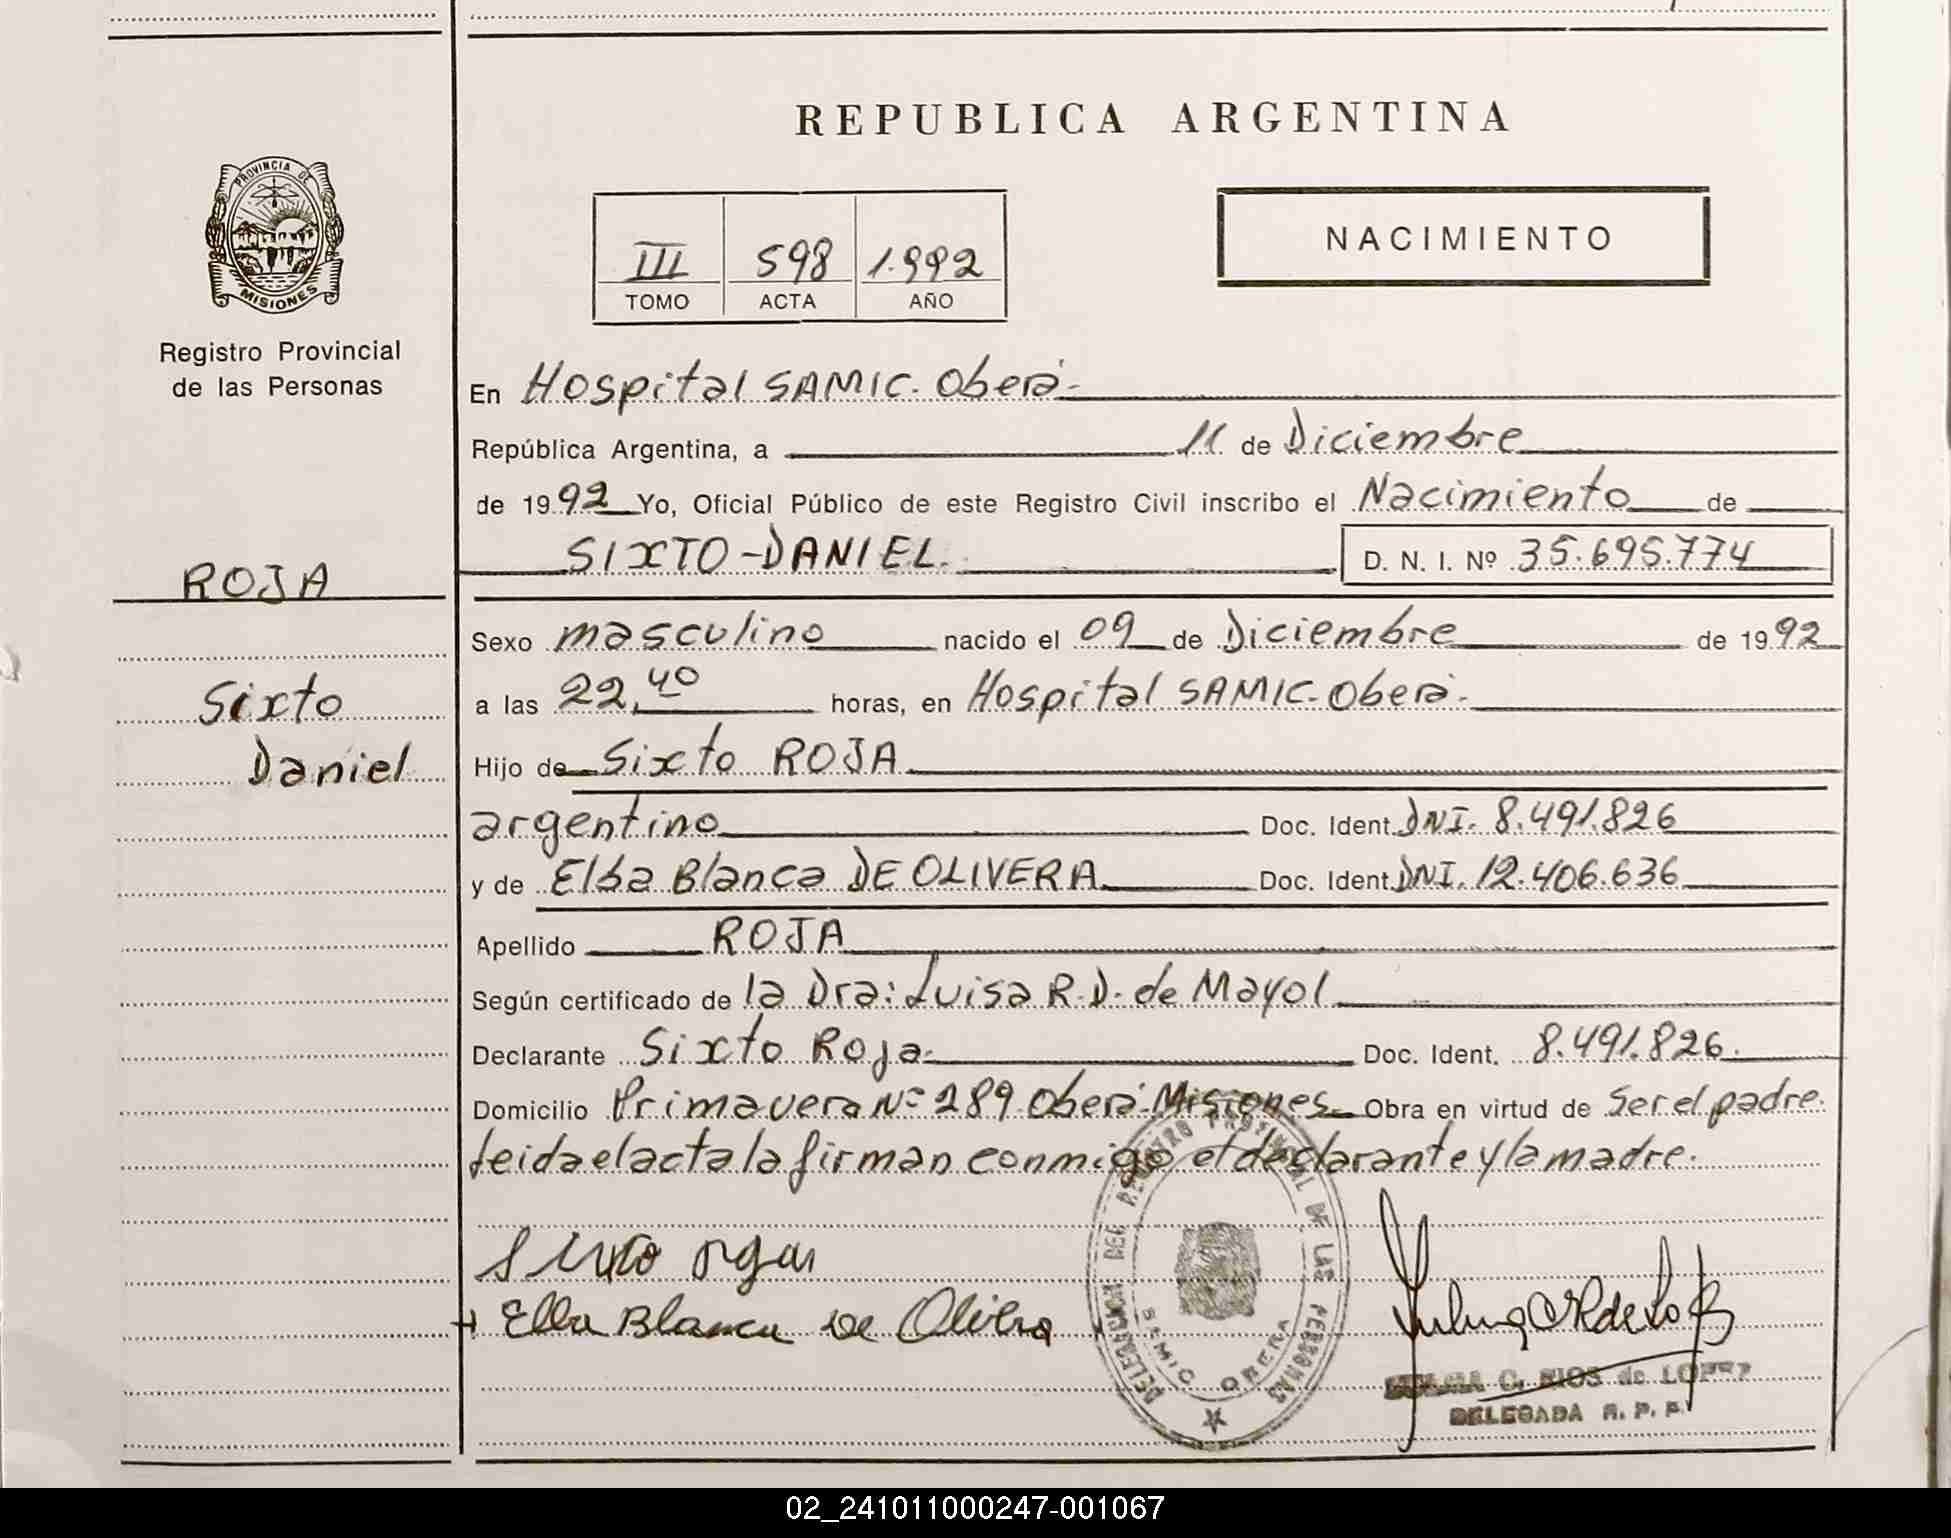 REPUBLICA ARGENTINA
PROVINCIA DE
MISIONES
Registro Provincial
de las Personas
III 598 1.992
TOMO ACTA AÑO
NACIMIENTO
En Hospital SAMIC. Oberá-
República Argentina, a 11 de Diciembre
de 1992 Yo, Oficial Público de este Registro Civil inscribo el Nacimiento de
SIXTO-DANIEL. D. N. I. Nº 35.695.774
ROJA
Sixto
Daniel
Sexo masculino nacido el 09 de Diciembre de 1992
a las 22,40 horas, en Hospital SAMIC. Oberá-
Hijo de Sixto ROJA
argentino Doc. Ident. DNI. 8.491.826
y de Elba Blanca DE OLIVERA Doc. Ident. DNI. 12.406.636
Apellido ROJA
Según certificado de la Dra: Luisa R.D. de Mayol
Declarante Sixto Roja- Doc. Ident. 8.491.826.
Domicilio Primavera Nº 289 Oberá-Misiones Obra en virtud de ser el padre.
Leida el acta la firman conmigo el declarante y la madre.
Elba Blanca De Olivera
DELEGACION DEL REGISTRO PROVINCIAL DE LAS PERSONAS
SAMIC OBERA
C. RIOS de LOPEZ
DELEGADA R. P. P.
02_241011000247-001067